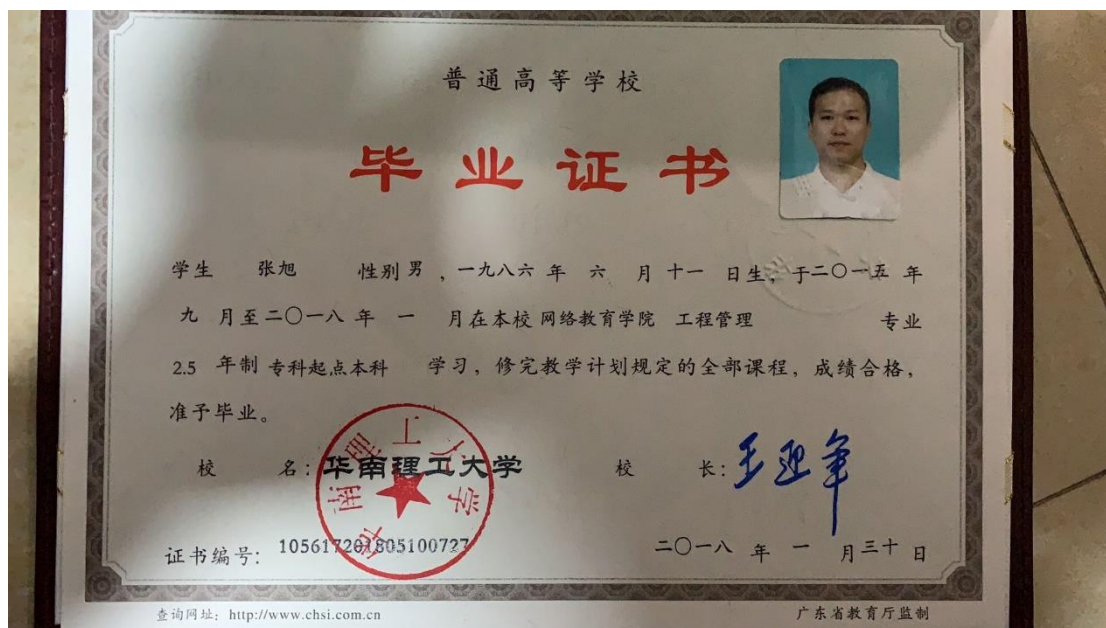 普通高等学校
毕业证书
学生 张旭 性别 男 ，一九八六 年 六 月 十一 日生，于二〇一五 年
九 月至二〇一八 年 一 月在本校 网络教育学院 工程管理 专业
2.5 年制 专科起点本科 学习，修完教学计划规定的全部课程，成绩合格，
准予毕业。
校 名：华南理工大学 校 长：王迎军
华南理工大学
证书编号： 105617201805100727 二〇一八 年 一 月三十 日
查询网址：http://www.chsi.com.cn 广东省教育厅监制